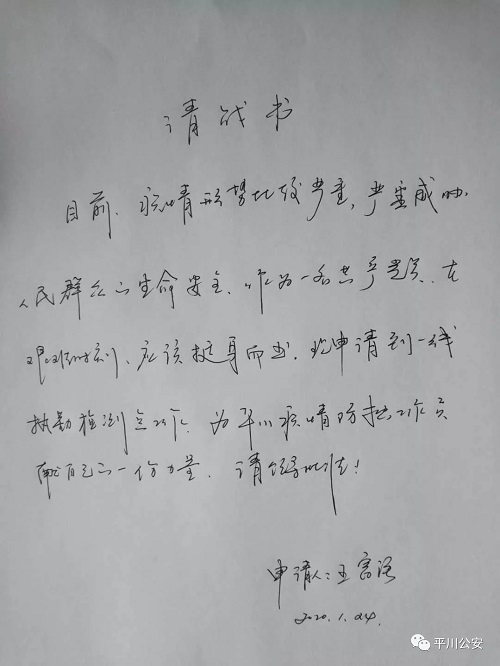 请战书
目前，疫情形势比较严重，严重威胁
人民群众的生命安全、作为一名共产党员、在
艰难时刻、应该挺身而出，现申请到一线
执勤检测点工作，为平川疫情防控工作贡
献自己的一份力量，请领导批准！
申请人：王富
2020.1.24.
平川公安